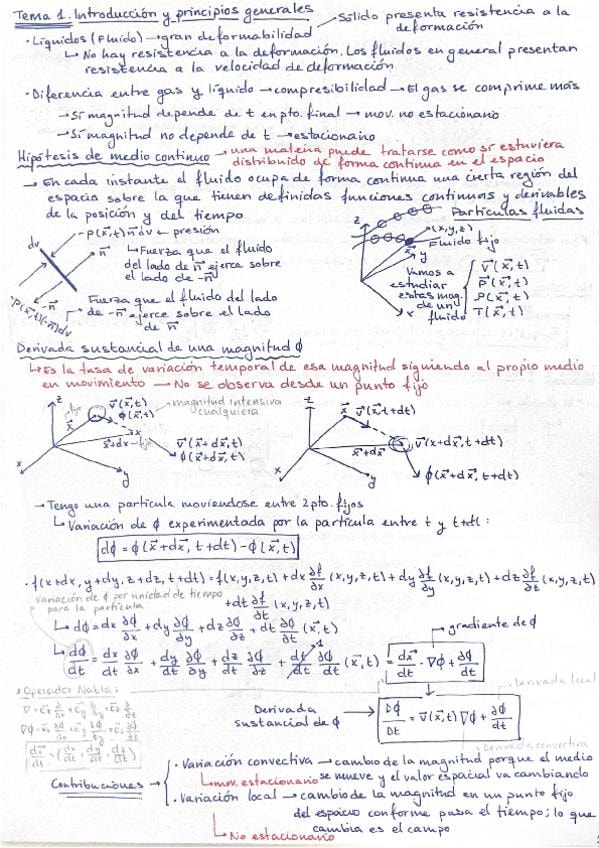 Tema 1. Introducción y principios generales
Sólido presenta resistencia a la deformación
· Líquidos (Fluido) → gran deformabilidad
↳ No hay resistencia a la deformación. Los fluidos en general presentan
resistencia a la velocidad de deformación
· Diferencia entre gas y líquido → compresibilidad → El gas se comprime más
→ Si magnitud depende de t en pto. final → mov. no estacionario
→ Si magnitud no depende de t → estacionario
Hipótesis de medio continuo → una materia puede tratarse como si estuviera
distribuido de forma continua en el espacio
→ En cada instante el fluido ocupa de forma continua una cierta región del
espacio sobre la que tienen definidas funciones continuas y derivables
de la posición y del tiempo
Partículas fluidas
dv
-P(x⃗,t) n⃗ dv ← presión
n⃗
↳ Fuerza que el fluido
del lado de n⃗ ejerce sobre
el lado de -n⃗
-n⃗
-P(x⃗,t)(-n⃗)dv
Fuerza que el fluido del lado
de -n⃗ ejerce sobre el lado
de n⃗
z
(x,y,z)
Fluido fijo
x⃗
y
x
Vamos a
estudiar
estas mag.
de un
fluido
v⃗(x⃗,t)
P(x⃗,t)
ρ(x⃗,t)
T(x⃗,t)
Derivada sustancial de una magnitud ϕ
↳ Es la tasa de variación temporal de esa magnitud siguiendo al propio medio
en movimiento → No se observa desde un punto fijo
z
fijo
v⃗(x⃗,t)
ϕ(x⃗,t)
magnitud intensiva
cualquiera
x⃗
x⃗+dx⃗
fijo
v⃗(x⃗+dx⃗,t)
ϕ(x⃗+dx⃗,t)
x
y
z
x⃗
v⃗(x⃗,t+dt)
x⃗+dx⃗
v⃗(x+dx⃗,t+dt)
ϕ(x⃗+dx⃗,t+dt)
x
y
→ Tengo una partícula moviendose entre 2 pto. fijos
↳ Variación de ϕ experimentada por la partícula entre t y t+dt:
dϕ = ϕ(x⃗+dx⃗, t+dt) - ϕ(x⃗,t)
· f(x+dx, y+dy, z+dz, t+dt) = f(x,y,z,t) + dx ∂f/∂x (x,y,z,t) + dy ∂f/∂y (x,y,z,t) + dz ∂f/∂z (x,y,z,t)
+ dt ∂f/∂t (x,y,z,t)
variación de ϕ por unidad de tiempo
para la partícula
↳ dϕ = dx ∂ϕ/∂x + dy ∂ϕ/∂y + dz ∂ϕ/∂z + dt ∂ϕ/∂t (x⃗,t)
gradiente de ϕ
↳ dϕ/dt = dx/dt ∂ϕ/∂x + dy/dt ∂ϕ/∂y + dz/dt ∂ϕ/∂z + dt/dt ∂ϕ/∂t (x⃗,t) = dx⃗/dt · ∇ϕ + ∂ϕ/∂t
1
* Operador Nabla:
Derivada
sustancial de ϕ
Dϕ/Dt = v⃗(x⃗,t) ∇ϕ + ∂ϕ/∂t
Derivada local
Derivada convectiva
Contribuciones
· Variación convectiva → cambio de la magnitud porque el medio
se mueve y el valor espacial va cambiando
↳ mov. estacionario
· Variación local → cambio de la magnitud en un punto fijo
del espacio conforme pasa el tiempo; lo que
cambia es el campo
↳ No estacionario